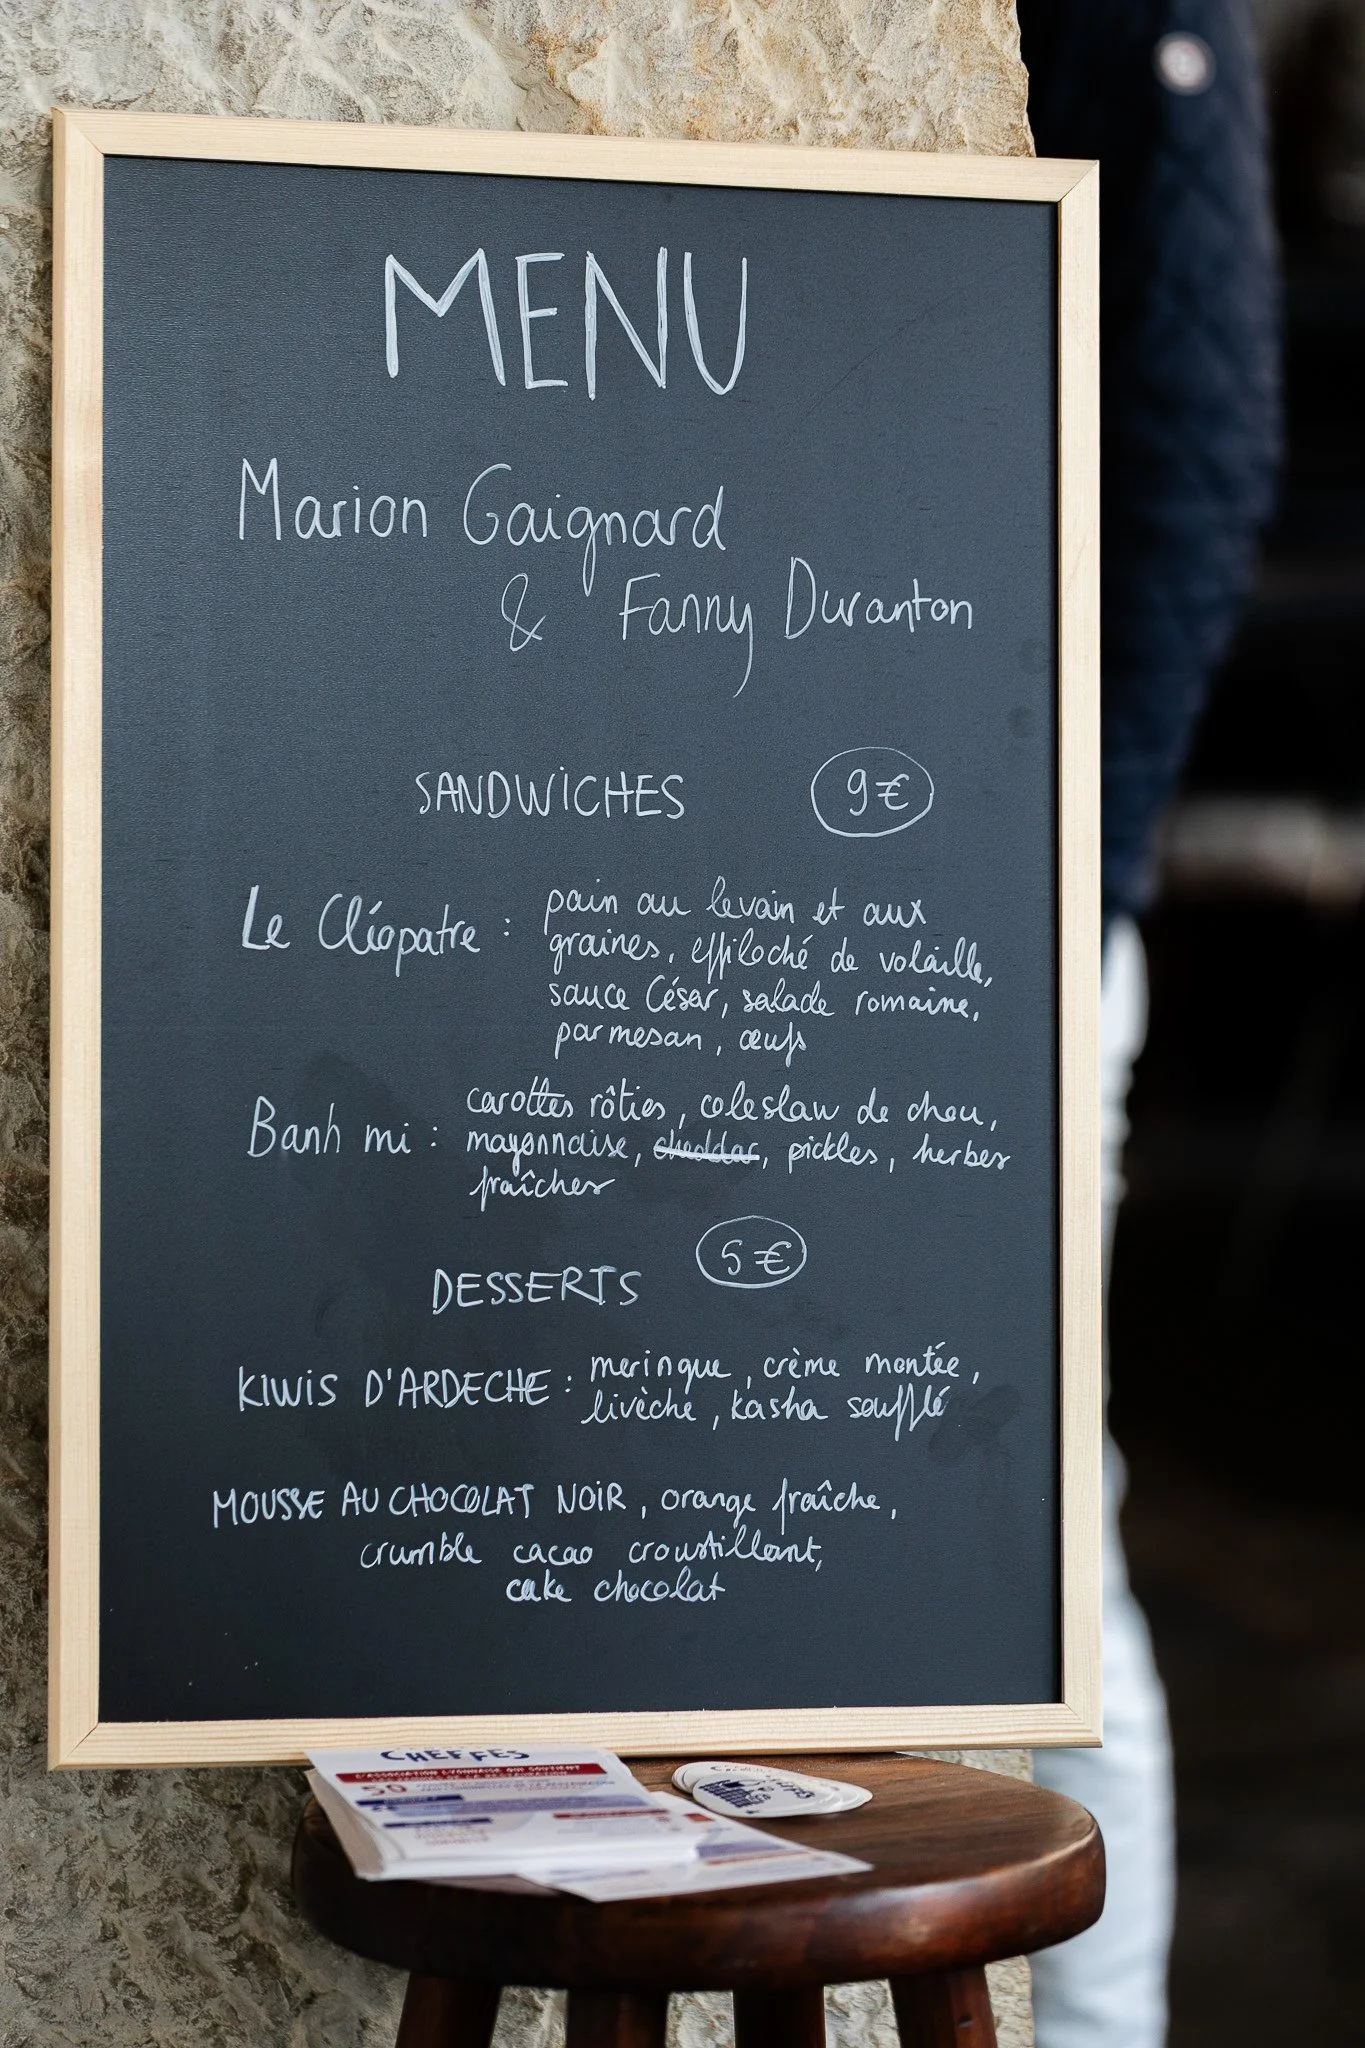 MENU
Marion Gaignard
& Fanny Duranton
SANDWICHES 9€
Le Cléopatre : pain au levain et aux
graines, effiloché de volaille,
sauce César, salade romaine,
parmesan, œufs
Banh mi : carottes rôties, coleslaw de chou,
mayonnaise, cheddar, pickles, herbes
fraîches
DESSERTS 5€
KIWIS D'ARDECHE : meringue, crème montée,
livèche, kasha soufflé
MOUSSE AU CHOCOLAT NOIR, orange fraîche,
crumble cacao croustillant,
cake chocolat
CHEFFES
L'ASSOCIATION LYONNAISE QUI SOUTIENT
50